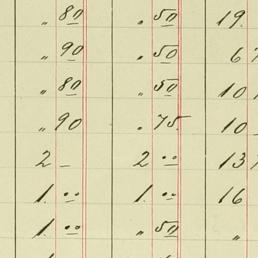 „ 80 „ 50 19
„ 90 „ 50 6
„ 80 „ 50 10
„ 90 „ 75 10
2 – 2 .. 13
1 .. 1 .. 16
1 .. „ 50 „